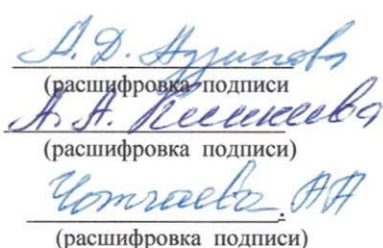 А. Д.
(расшифровка подписи
А. А.
(расшифровка подписи)
Чотчаева АА.
(расшифровка подписи)